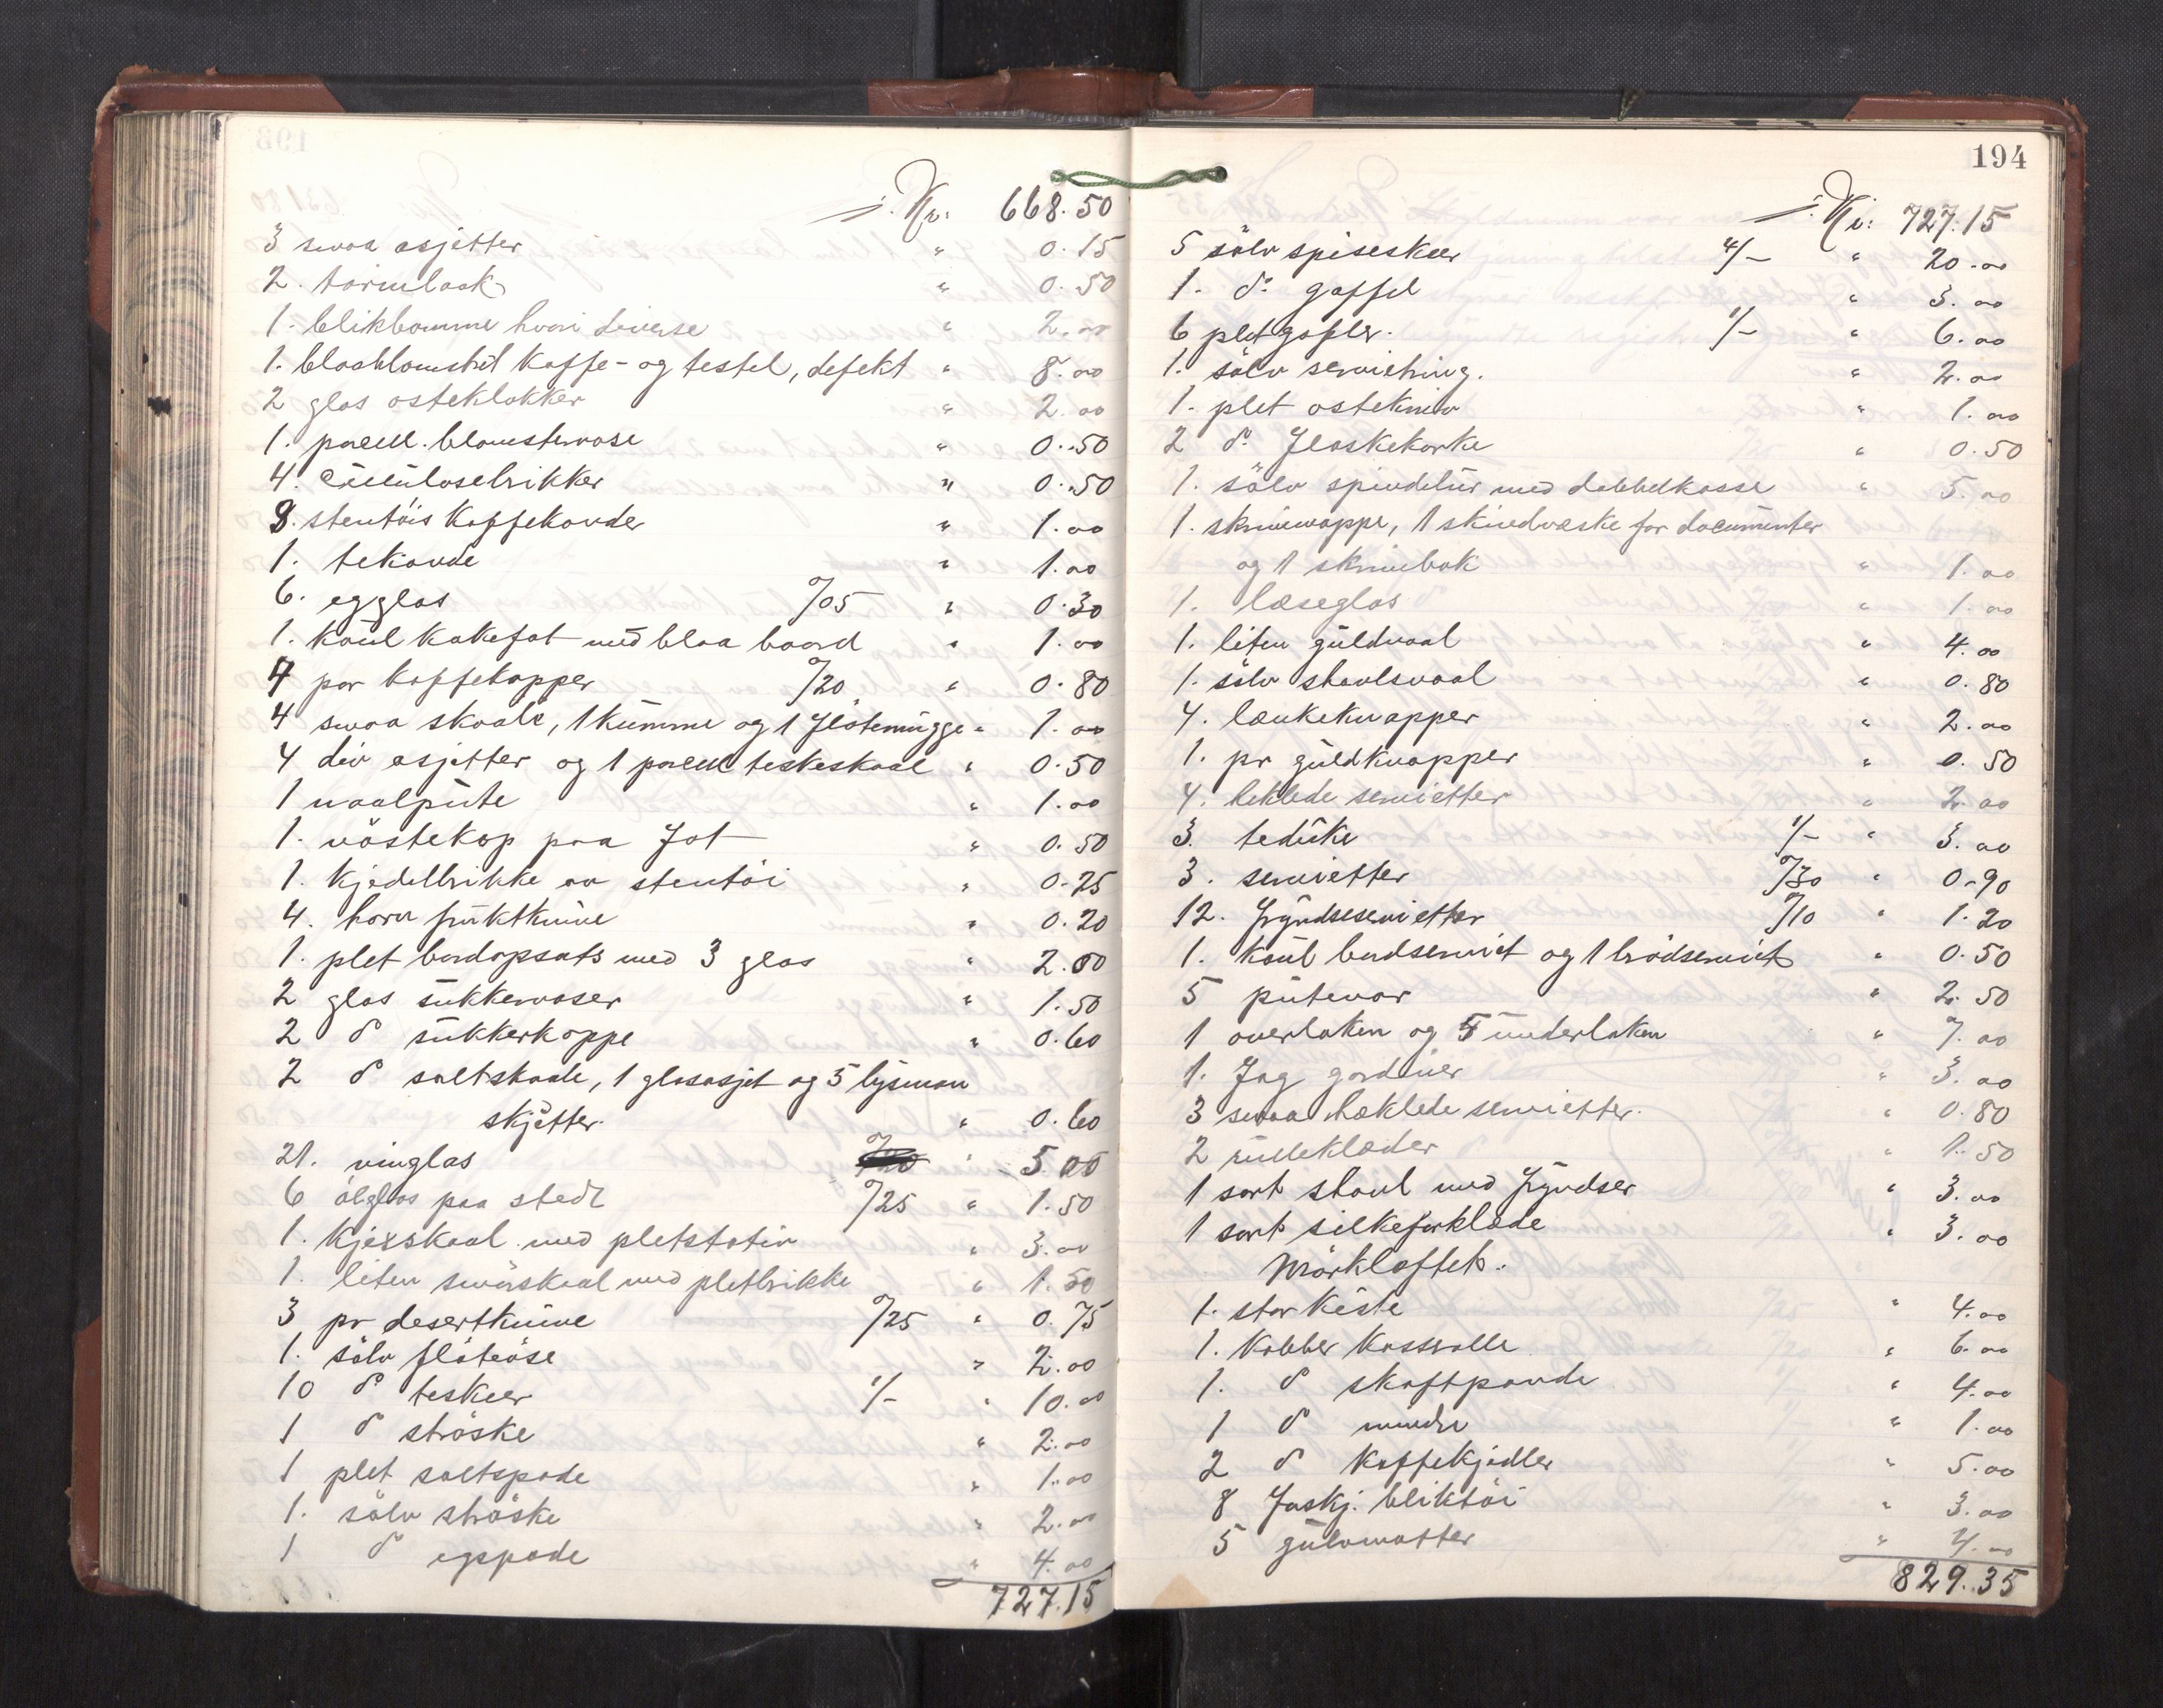 ÷ Kr. 668.50
3 smaa asjetter " 0.15
2. " 0.50
1. blikbomme hvori diverse " 2.00
1. blaablomstret kaffe- og testel, defekt " 8.00
2 glas osteklokker " 2.00
1. porcell. blomstervase " 0.50
4. celulosebrikker " 0.50
3. stentöis kaffekander " 1.00
1. tekande " 1.00
6. egglas %05 " 0.30
1. kakefat med blaa baard " 1.00
4 par kaffekopper %20 " 0.80
4 smaa skaale, 1 kumme og 1 flötemugge " 1.00
4 div asjetter og 1 porcell teskeskaal " 0.50
1 naalpute " 1.00
1. kop paa fot " 0.50
1. kjedelbrikke av stentöi " 0.25
4. horn fruktknive " 0.20
1. plet bordopsats med 3 glas " 2.00
2 glas sukkervaser " 1.50
2 do sukkerkoppe " 0.60
2 do saltskaale, 1 glasasjet og 5 lysman
skjetter. " 0.60
21. vinglas " 5.00
6 ölglas paa stett %25 " 1.50
1. kjexskaal med pletstativ " 3.00
1. liten smörskaal med pletbrikke " 1.50
3 pr desertknive %25 " 0.75
1. sölv flöteöse " 2.00
10 do teskeer 1/- " 10.00
1 do ströske " 2.00
1 plet saltspade " 1.00
1. sölv ströske " 2.00
1 do egspade " 4.00
727.15
194
÷ Kr. 727.15
5 sölv spiseskeer 4/- " 20.00
1. do gaffel " 3.00
6 pletgafler. 1/- " 6.00
1. sölv serviethring. " 2.00
1. plet ostekniv " 1.00
2 do flaskekorke " 0.50
1. sölv spindelur med dobbelkasse " 5.00
1. skrivemappe, 1 skindvæske for documenter
og 1 skrivebok " 1.00
1. læseglas " 1.00
1. liten guldnaal " 4.00
1. sölv shavlsnaal " 0.80
4. lænkeknapper " 2.00
1. pr guldknapper " 0.50
4. heklede servietter " 2.00
3. teduke 1/- " 3.00
3. servietter %30 " 0.90
12. fryndseservietter %10 " 1.20
1. bordserviet og 1 brödserviet " 0.50
5 putevar " 2.50
1 overlaken og 5 underlaken " 7.00
1. fag gardiner " 3.00
3 smaa heklede servietter. " 0.80
2 rulleklæder " 1.50
1 sort shavl med fryndser " 3.00
1 sort silkeforklæde " 3.00
Mörkloftet.
1. stor kiste " 4.00
1. kobber kasserolle " 6.00
1. do skaftpande " 4.00
1 do mindre " 1.00
2 do kaffekjedler " 5.00
8 forskj. bliktöi " 3.00
5 gulvmatter " 4.00
829.35